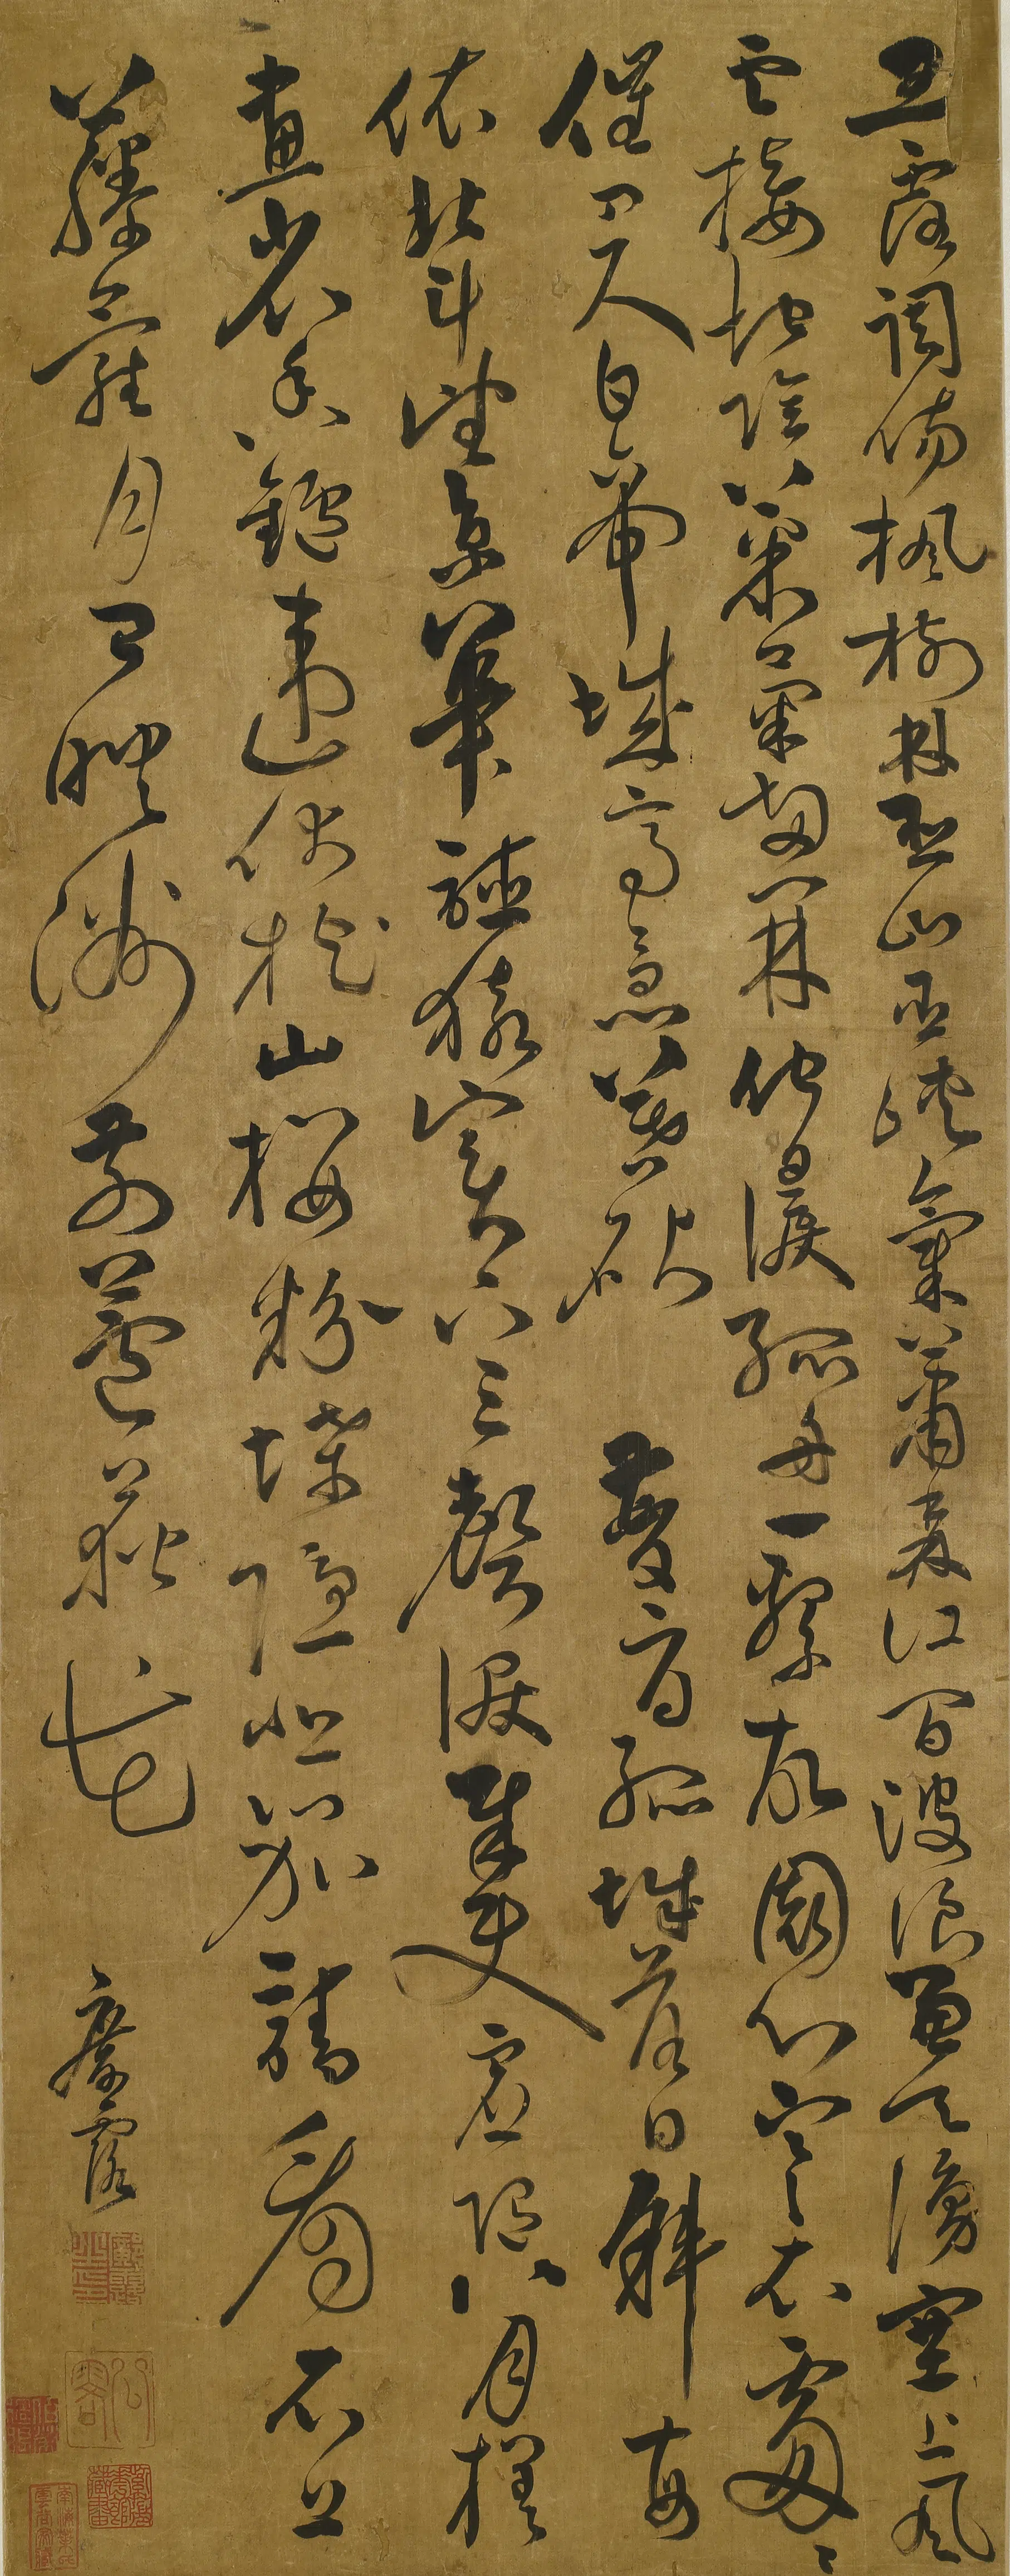 玉露調傷楓樹林巫山巫峽氣蕭森江間波浪兼天湧塞上風
雲接地陰叢菊兩開他日淚孤舟一繫故園心寒衣處〻
催刀尺白帝城高急暮砧 夔府孤城落日斜每
依北斗望京華聽猿實下三聲淚奉使虛隨八月槎
畫省香鑪違伏枕山樓粉堞隱悲笳請看石上
藤蘿月已映洲前蘆荻花
鄺露